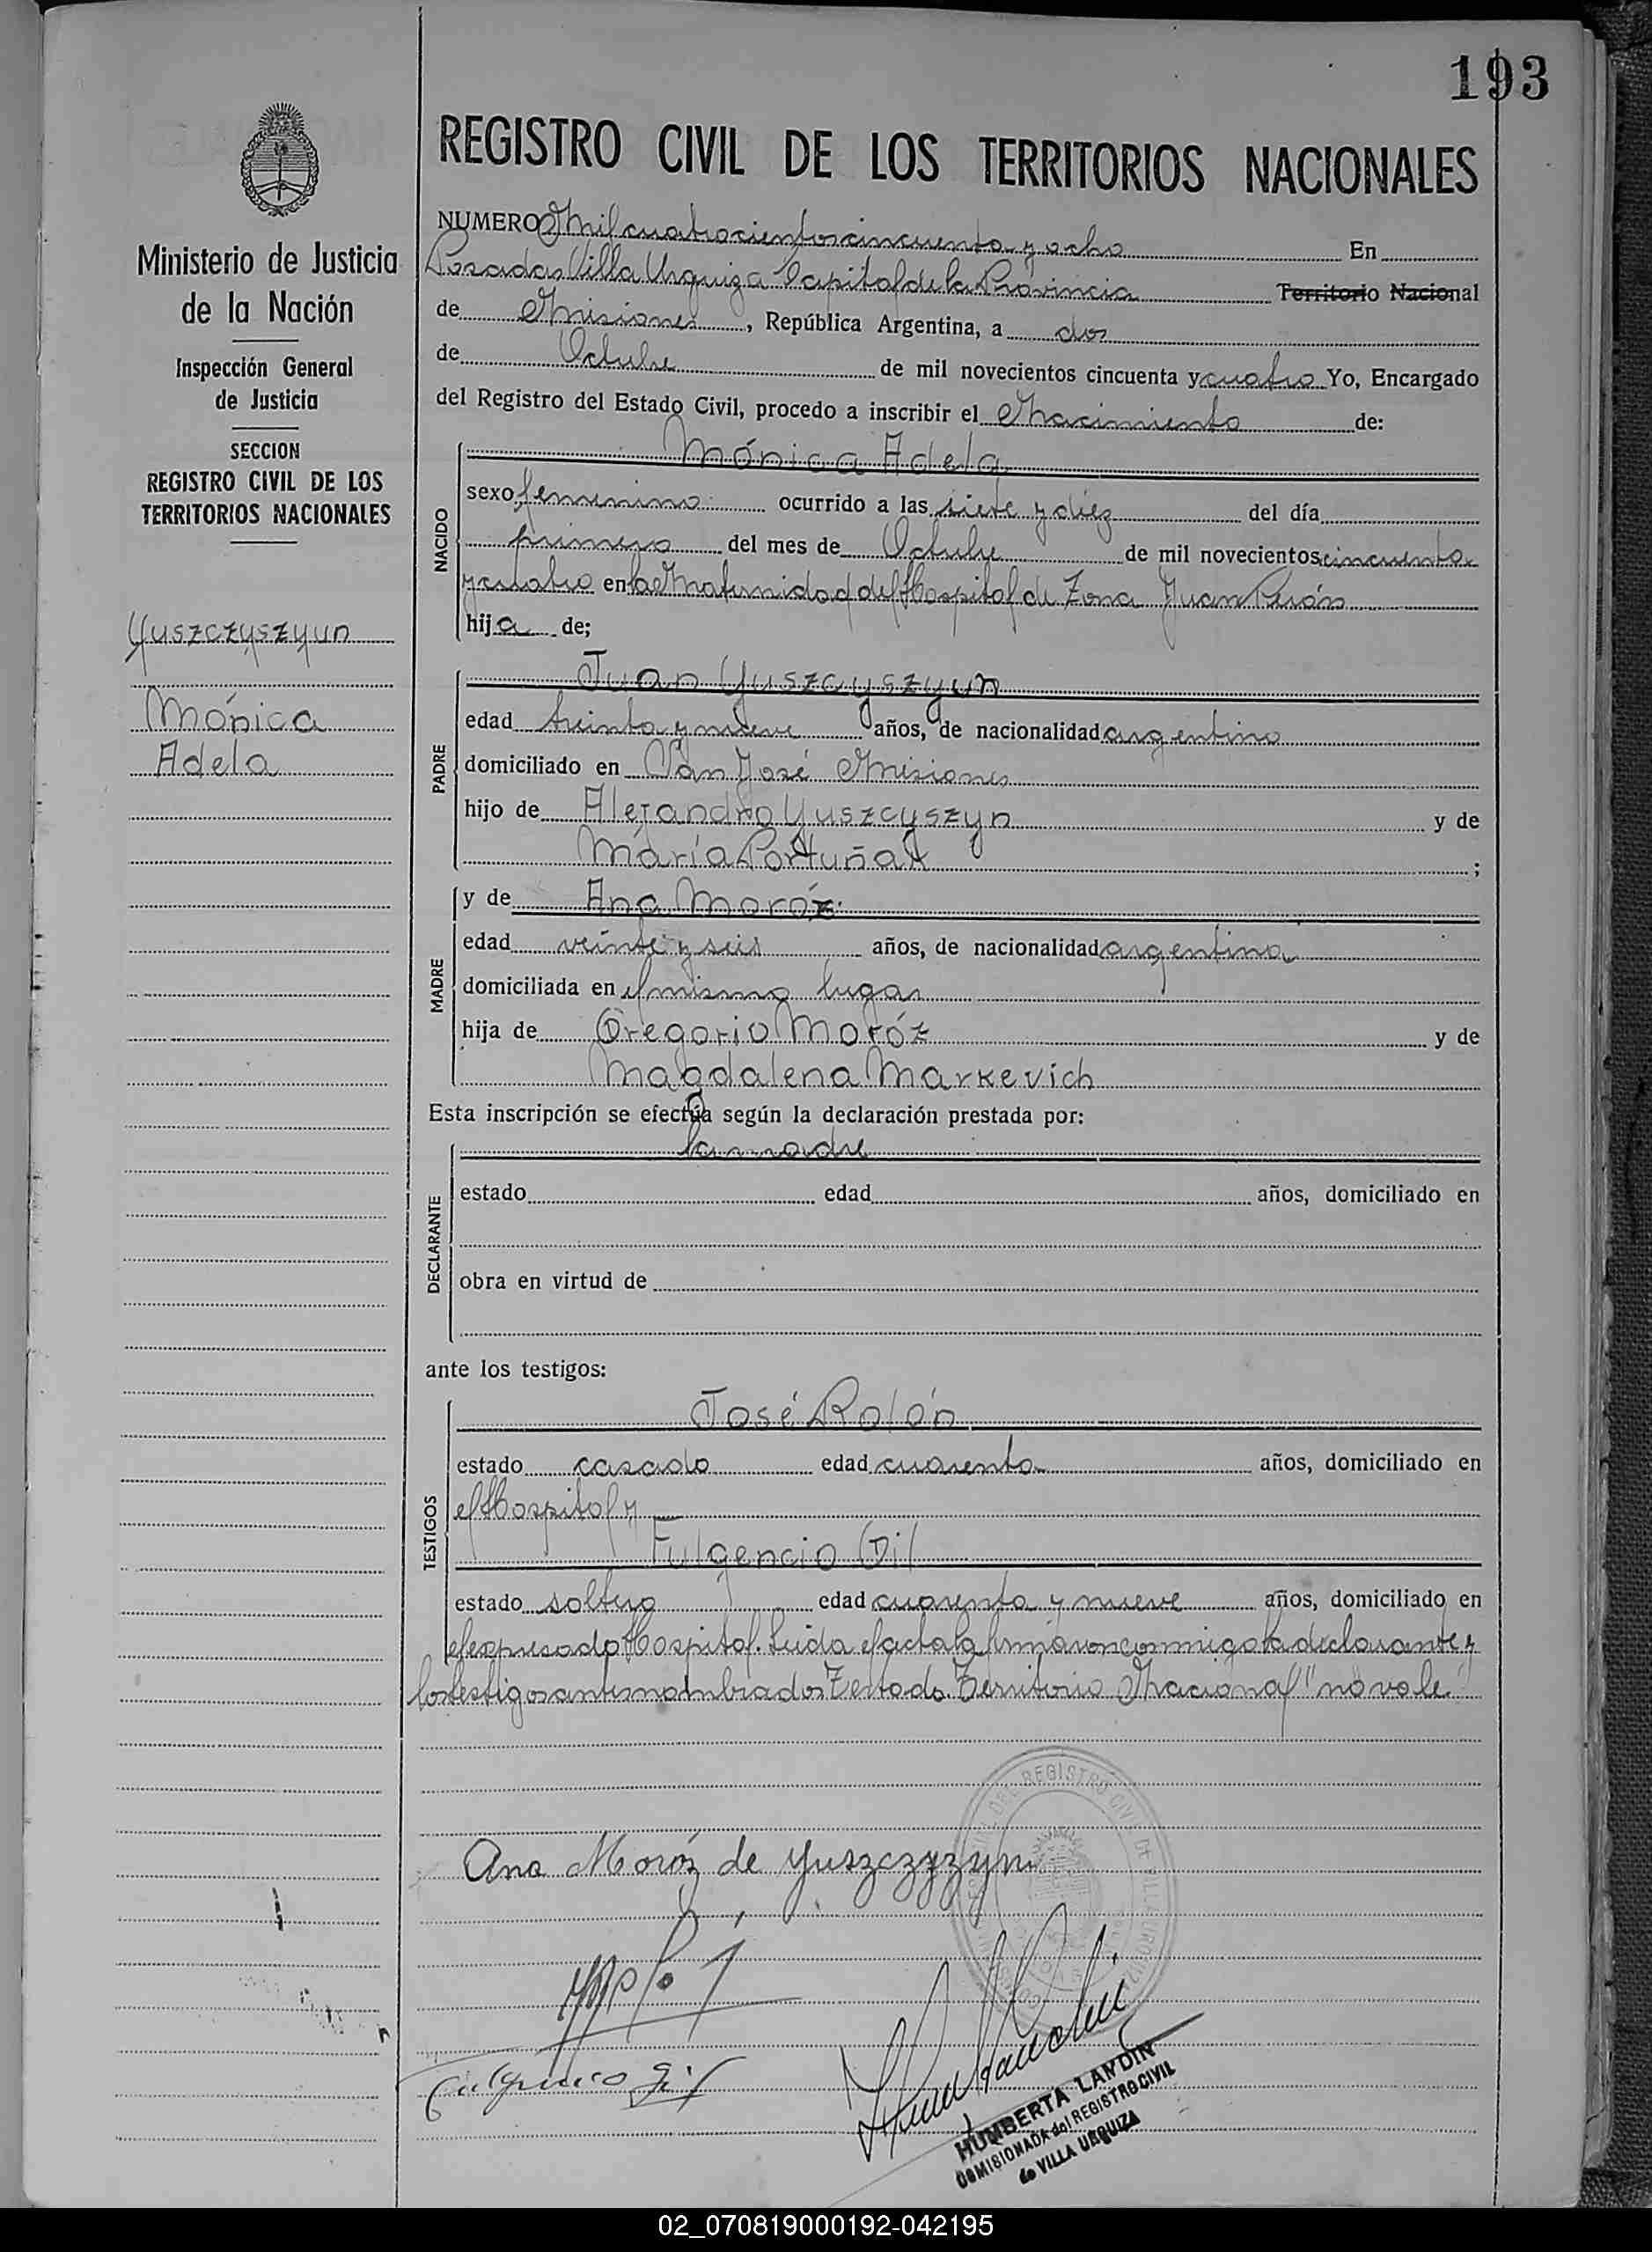 193
REGISTRO CIVIL DE LOS TERRITORIOS NACIONALES
Ministerio de Justicia
de la Nación
Inspección General
de Justicia
SECCION
REGISTRO CIVIL DE LOS
TERRITORIOS NACIONALES
Yuszczyszyun
Mónica
Adela
NUMERO Mil cuatrocientos cincuenta y ocho En
Posadas Villa Urquiza Capital de la Provincia Territorio Nacional
de Misiones, República Argentina, a dos
de Octubre de mil novecientos cincuenta y cuatro Yo, Encargado
del Registro del Estado Civil, procedo a inscribir el Nacimiento de:
NACIDO
Mónica Adela
sexo femenino ocurrido a las siete y diez del día
primero del mes de Octubre de mil novecientos cincuenta
y cuatro en la Maternidad del Hospital de Zona Juan Perón
hija de;
PADRE
Juan Yuszcyszyun
edad treinta y nueve años, de nacionalidad argentino
domiciliado en San José Misiones
hijo de Alejandro Yuszcyszyn y de
María Portuñak ;
MADRE
y de Ana Moróz
edad veinte y seis años, de nacionalidad argentina
domiciliada en el mismo lugar
hija de Gregorio Moróz y de
Magdalena Markevich
Esta inscripción se efectúa según la declaración prestada por:
DECLARANTE
la madre
estado edad años, domiciliado en
obra en virtud de
ante los testigos:
TESTIGOS
José Rolón
estado casado edad cuarenta años, domiciliado en
el Hospital y
Fulgencio Gil
estado soltero edad cuarenta y nueve años, domiciliado en
el expresado Hospital. Leida el acta la firmaron conmigo la declarante y
los testigos antes nombrados Testado. Territorio Nacional "no vale."
Ana Moróz de Yuszczyzyn
Fulgencio Gil
REGISTRO CIVIL DE VILLA URQUIZA
HUMBERTA LANDIN
COMISIONADA del REGISTRO CIVIL
de VILLA URQUIZA
02_070819000192-042195